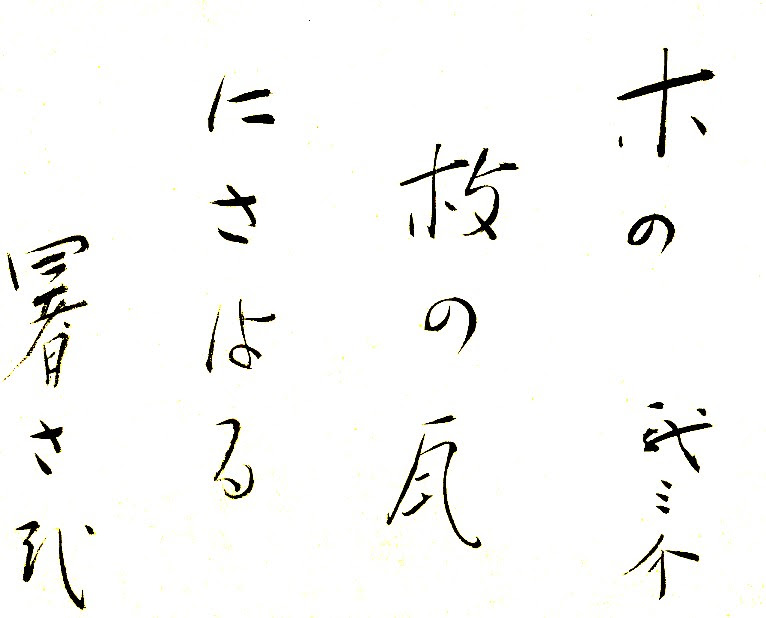 木の
枝の瓦
にさはる
暑さ哉